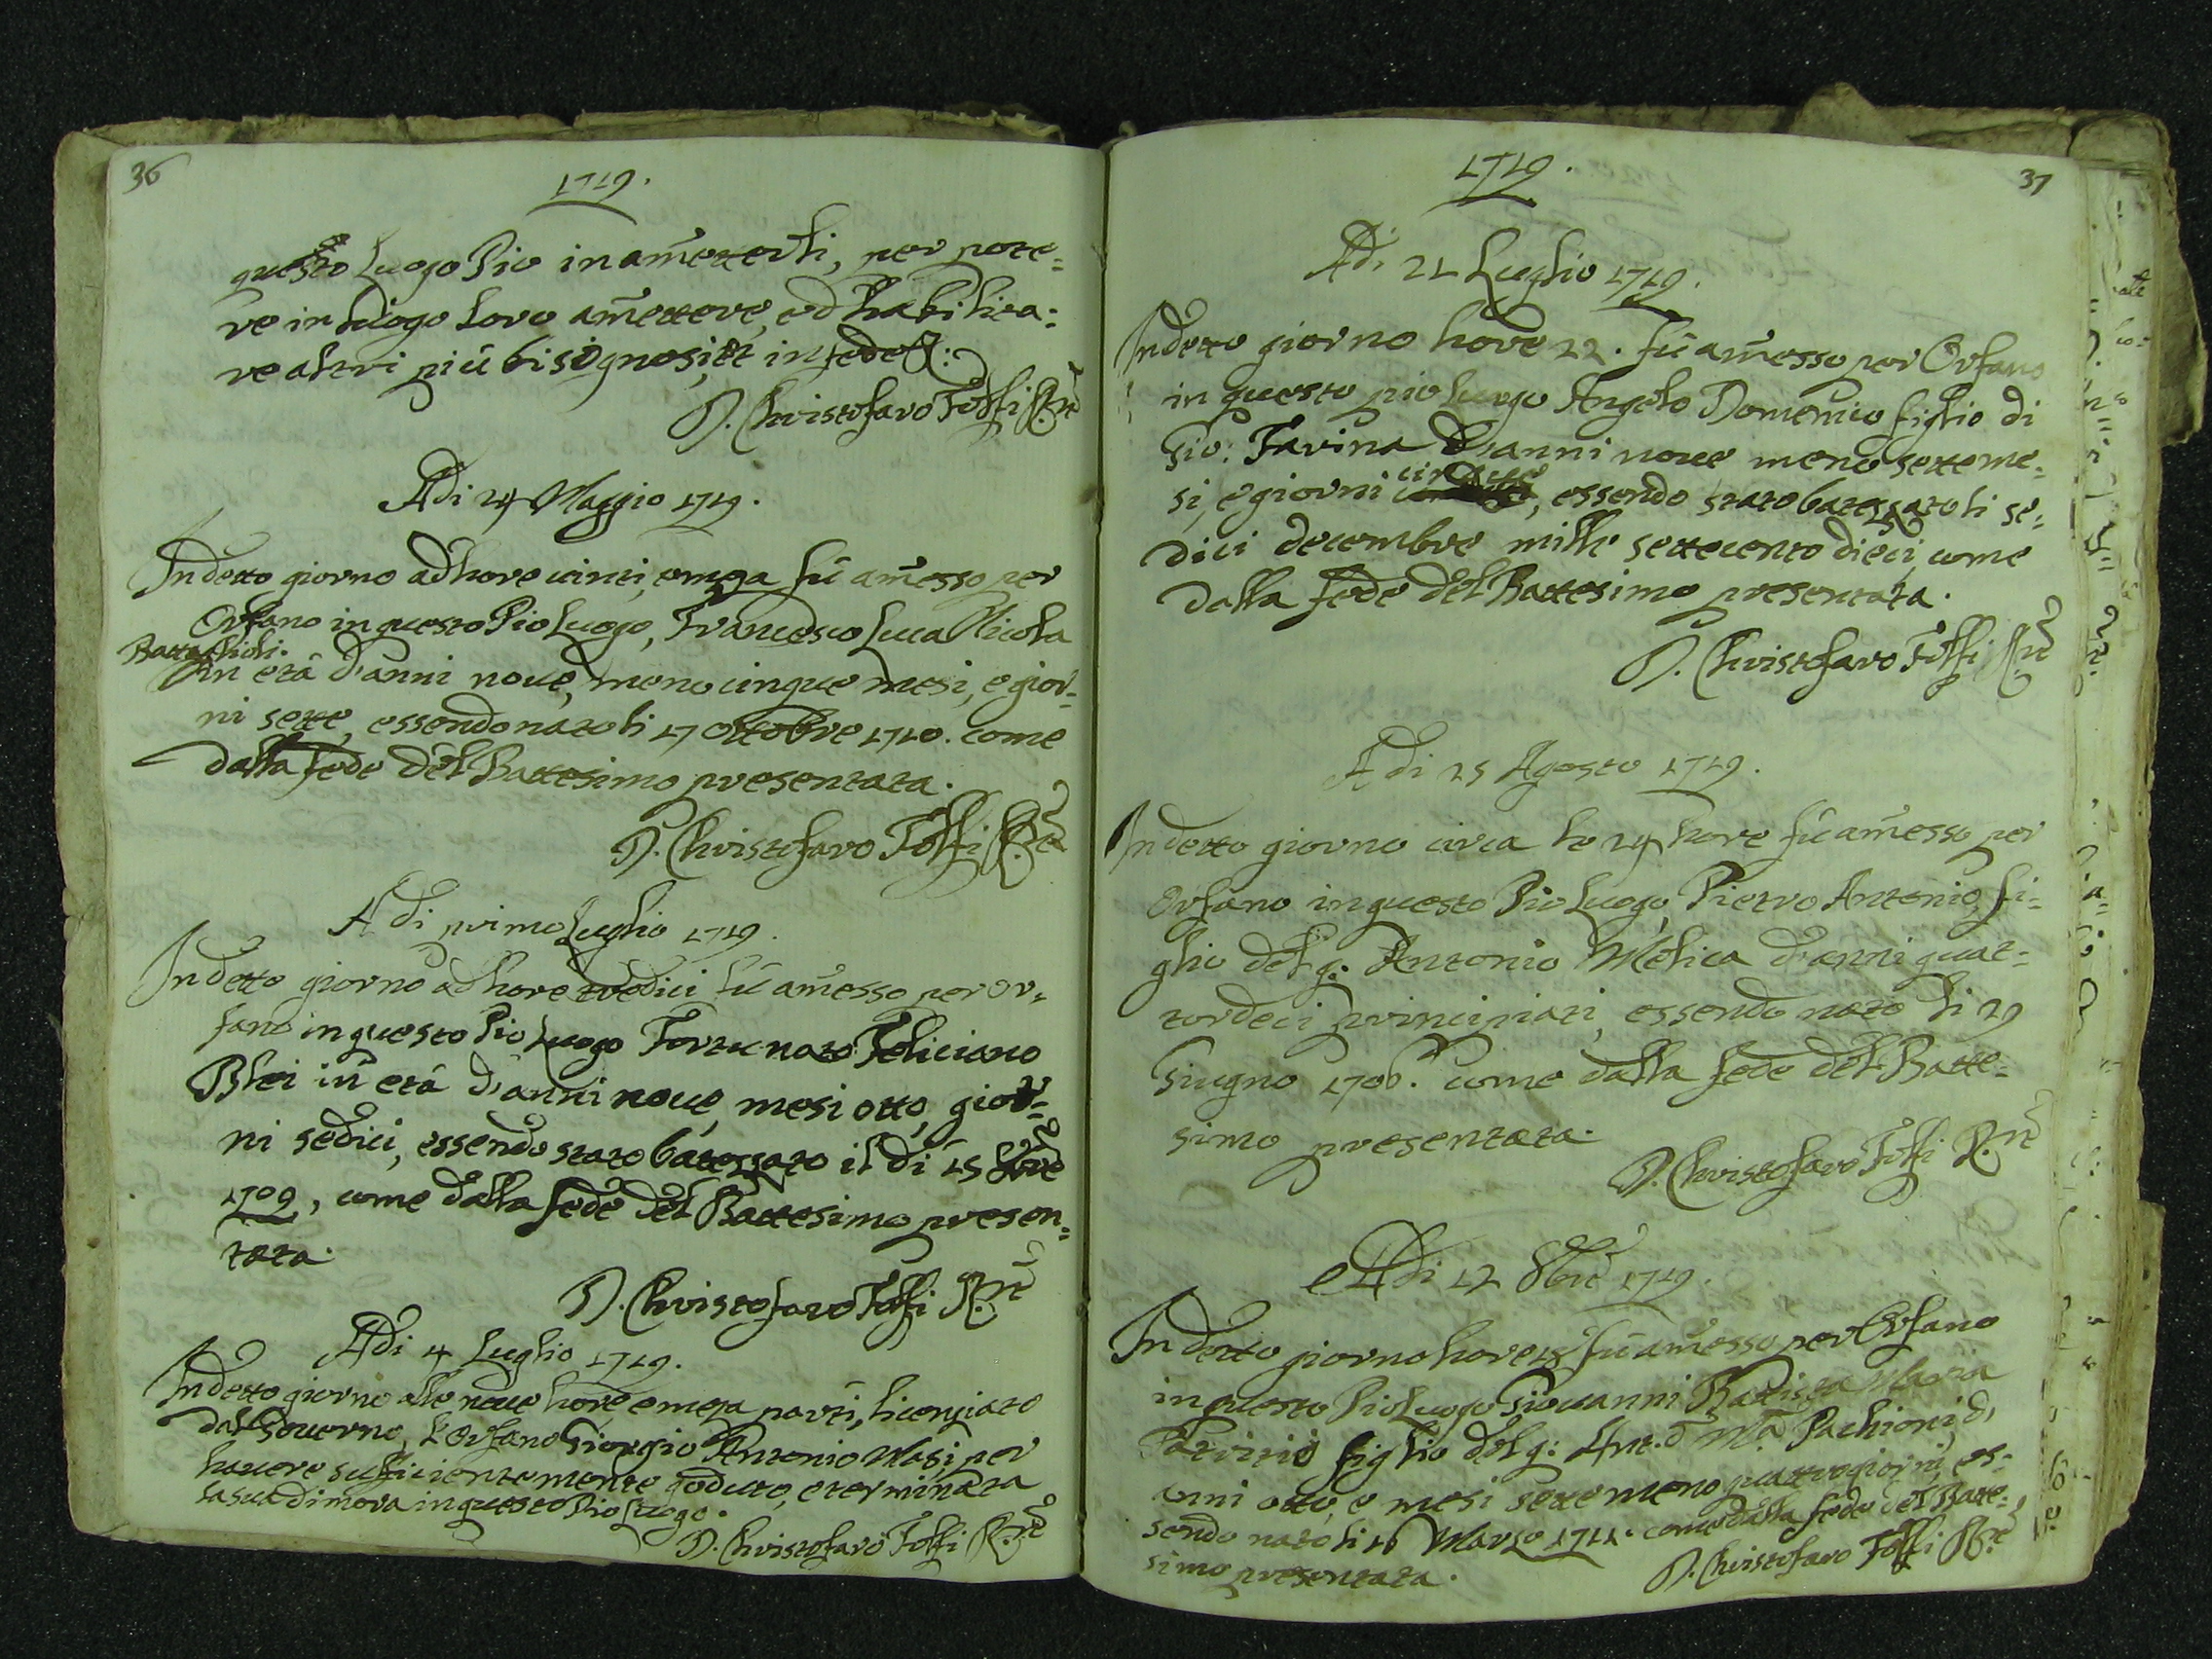 36
1719.
questo Luogo Pio in ametterli, per pote=
re in luogo loro amettere, ed habilita=
re altri più bisognosi, et in fede
D. Christofaro Tolfi
Adi 24 Maggio 1719.
In detto giorno ad hore vinti, e meza fù amesso per
Orfano in questo Pio Luogo, Francesco Luca Nicola
Battaglioli.
in età d'anni noue, meno cinque mesi, e gior=
ni sette, essendo nato li 17 ottobre 1710. come
dalla fede del Battesimo presentata.
D. Christofaro Tolfi
A di primo Luglio 1719.
In detto giorno ad hore tredici fù amesso per or=
fano in questo Pio Luogo Fortunato Feliciano
Blei in età d'anni noue, mesi otto, gior=
ni sedici, essendo stato batezzato il di 15
1709, come dalla fede del Battesimo presen=
tata.
D. Christofaro Tolfi Rre
Adi 4 Luglio 1719.
In detto giorno alle noue hore e meza partì, licenziato
dal Gouerno, l'Orfano Giorgio Antonio Masi, per
hauere sufficientemente goduto, e terminata
la sua dimora in questo Pio Luogo.
D. Christofaro Tolfi Rre
37
1719.
Adi 21 Luglio 1719.
In detto giorno hore 22. fù amesso per Orfano
in questo pio luogo Angelo Domenico figlio di
Gio: Farina d'anni noue meno sette me=
si, e giorni cinque, essendo stato batezzato li se=
dici decembre mille settecento dieci, come
dalla fede del Battesimo presentata.
D. Christofaro Tolfi Rre
A di 25 Agosto 1719.
In detto giorno circa le 24 hore fù amesso per
Orfano in questo Pio Luogo, Pietro Antonio, fi=
glio del q: Antonio Melica d'anni quat=
tordeci principiati, essendo nato li 29
Giugno 1706. come dalla fede del Batte=
simo presentata.
D. Christofaro Tolfi Rre
Adi 12 8bre 1719.
In detto giorno hore fù amesso per Orfano
in questo Pio Luogo Giouanni Battista Maria
figlio del q: Ant.o Pachioni, d'
anni otto, e mesi sette meno quattro giorni, es=
sendo nato li 16 Marzo 1711. come dalla fede del Batte=
simo presentata.
D. Christofaro Tolfi Rre